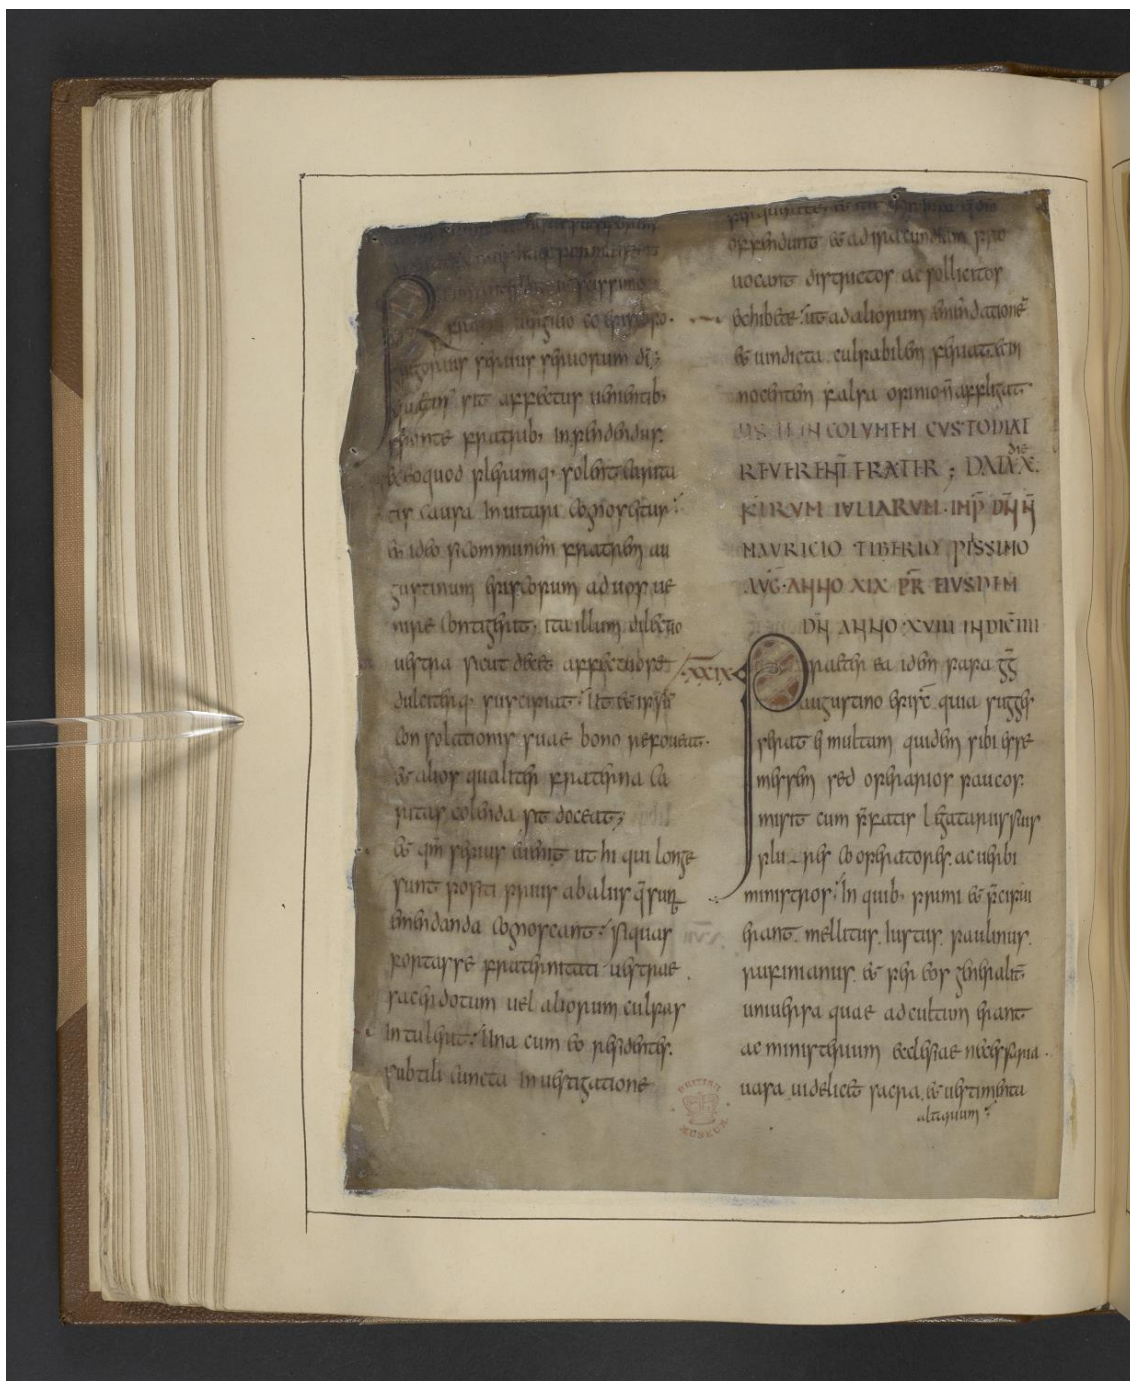 Reuerentissimo
fratri uirgilio co episcopo.
gregorius seruus seruorum dī;
Quantus sit affectus uenientib;
sponte fratrib; inpendendus.
et eo quod plerumq; solent carita
tis causa inuitari cognoscitur;
et ideo si communem fratrem au
gustinum episcopum ad uos ue
nire contigerit, ita illum dilectio
uestra sicut decet affectuose
dulciterq; suscipiat; Ut et ipsum
consolationis suae bono refoueat.
et alios qualiter fraterna ca
ritas colenda sit doceat;
et qm̄ sepius euenit ut hi qui longe
sunt positi prius ab aliis q̄ sunt
emendanda cognoscant; siquas
fortasse fraternitati uestrae
sacerdotum uel aliorum culpas
intulerit; Una cum eo residentes.
subtili cuncta inuestigatione
perquirite, et ita
offendunt et ad iracundiam pro
uocant districtos ac sollicitos
exhibete; ut ad aliorum emendationē
et uindicta culpabilem feriat et in
nocentem falsa opinio n̄ affligat.
DS TE INCOLVMEM CVSTODIAT
REVERENT̄ FRATER ; DATA DIE X.
KLRVM IVLIARVM . IMP̄ DN̄N̄
MAVRICIO TIBERIO PISSIMO
AVG̅ . ANNO XIX PR̄ EIVSDEM
DN̄ ANNO . XVIII INDIC̄ IIII
.XXIX. Praeterea idem papa ḡḡ
augustino episc̄ quia sugges
serat ei multam quidem sibi esse
messem sed operarios paucos.
misit cum p̄fatis legatariis suis
plures cooperatores. ac uerbi
ministros; In quib; primi et p̄cipui
erant. mellitus. Iustus. paulinus.
rufinianus. et per eos generalit̄
uniuersa quae ad cultum erant
ac ministerium ecclesiae necessaria.
uasa uidelicet sacra. et uestimenta
altarium;
BRITISH
MUSEUM